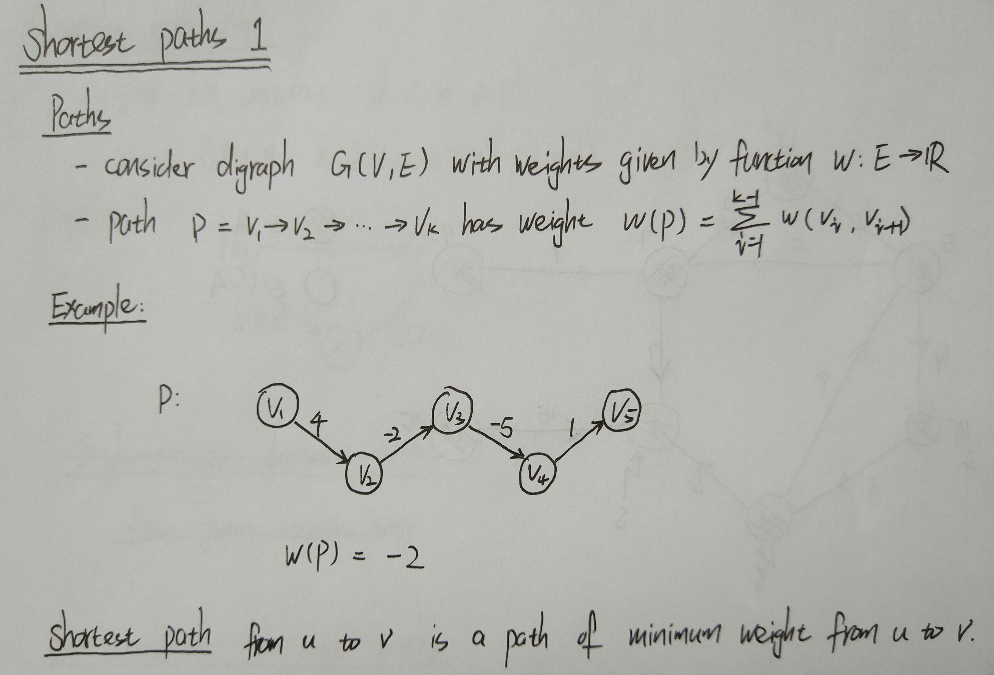 Shortest paths 1
Paths
- consider digraph G(V,E) with weights given by function w: E→ℝ
- path p = v₁→v₂→ ⋯ →vₖ has weight w(p) = ∑ᵢ₌₁ᵏ⁻¹ w(vᵢ, vᵢ₊₁)
Example:
P:
V₁ 4 V₂ -2 V₃ -5 V₄ 1 V₅
W(P) = -2
Shortest path from u to v is a path of minimum weight from u to v.